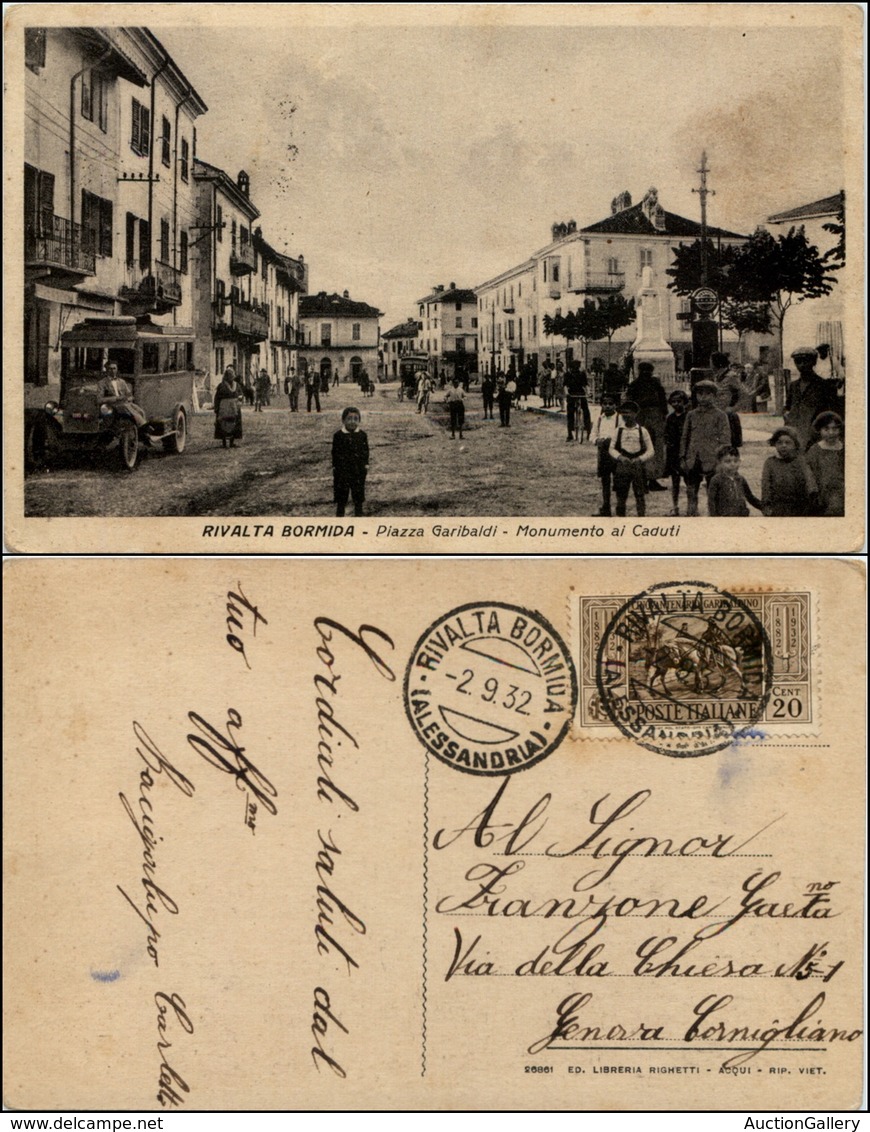 RIVALTA BORMIDA - Piazza Garibaldi - Monumento ai Caduti
Cordiali saluti dal
tuo aff.mo
Bacigalupo Carletto
RIVALTA BORMIDA
-2.9.32.
(ALESSANDRIA)
CINQVANTENARIO GARIBALDINO
1882
1882
1932
RIVALTA BORMIDA
(ALESSANDRIA)
POSTE ITALIANE
CENT
20
Al Signor
Franzone Gaeta no
Via della Chiesa N. 5-1
Genova Cornigliano
26861 ED. LIBRERIA RIGHETTI - ACQUI - RIP. VIET.
AuctionGallery